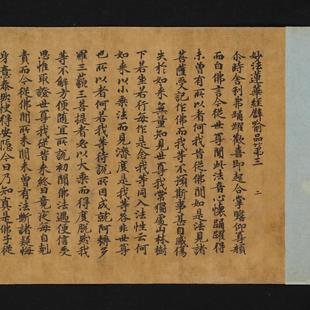 妙法蓮華經譬喻品第三 二
尒時舍利弗踊躍歡喜即起合掌瞻仰尊顏
而白佛言今從世尊聞此法音心懷踊躍得
未曾有所以者何我昔從佛聞如是法見諸
菩薩受記作佛而我等不預斯事甚自感傷
失於如來無量知見世尊我常獨處山林樹
下若坐若行每作是念我等同入法性云何
如來以小乘法而見濟度是我等咎非世尊
也所以者何若我等待說所因成就阿耨多
羅三藐三菩提者必以大乘而得度脫然我
等不解方便隨宜所說初聞佛法遇便信受
思惟取證世尊我從昔來終日竟夜每自剋
責而今從佛聞所未聞未曾有法斷諸疑悔
身意泰然快得安隱今日乃知真是佛子從